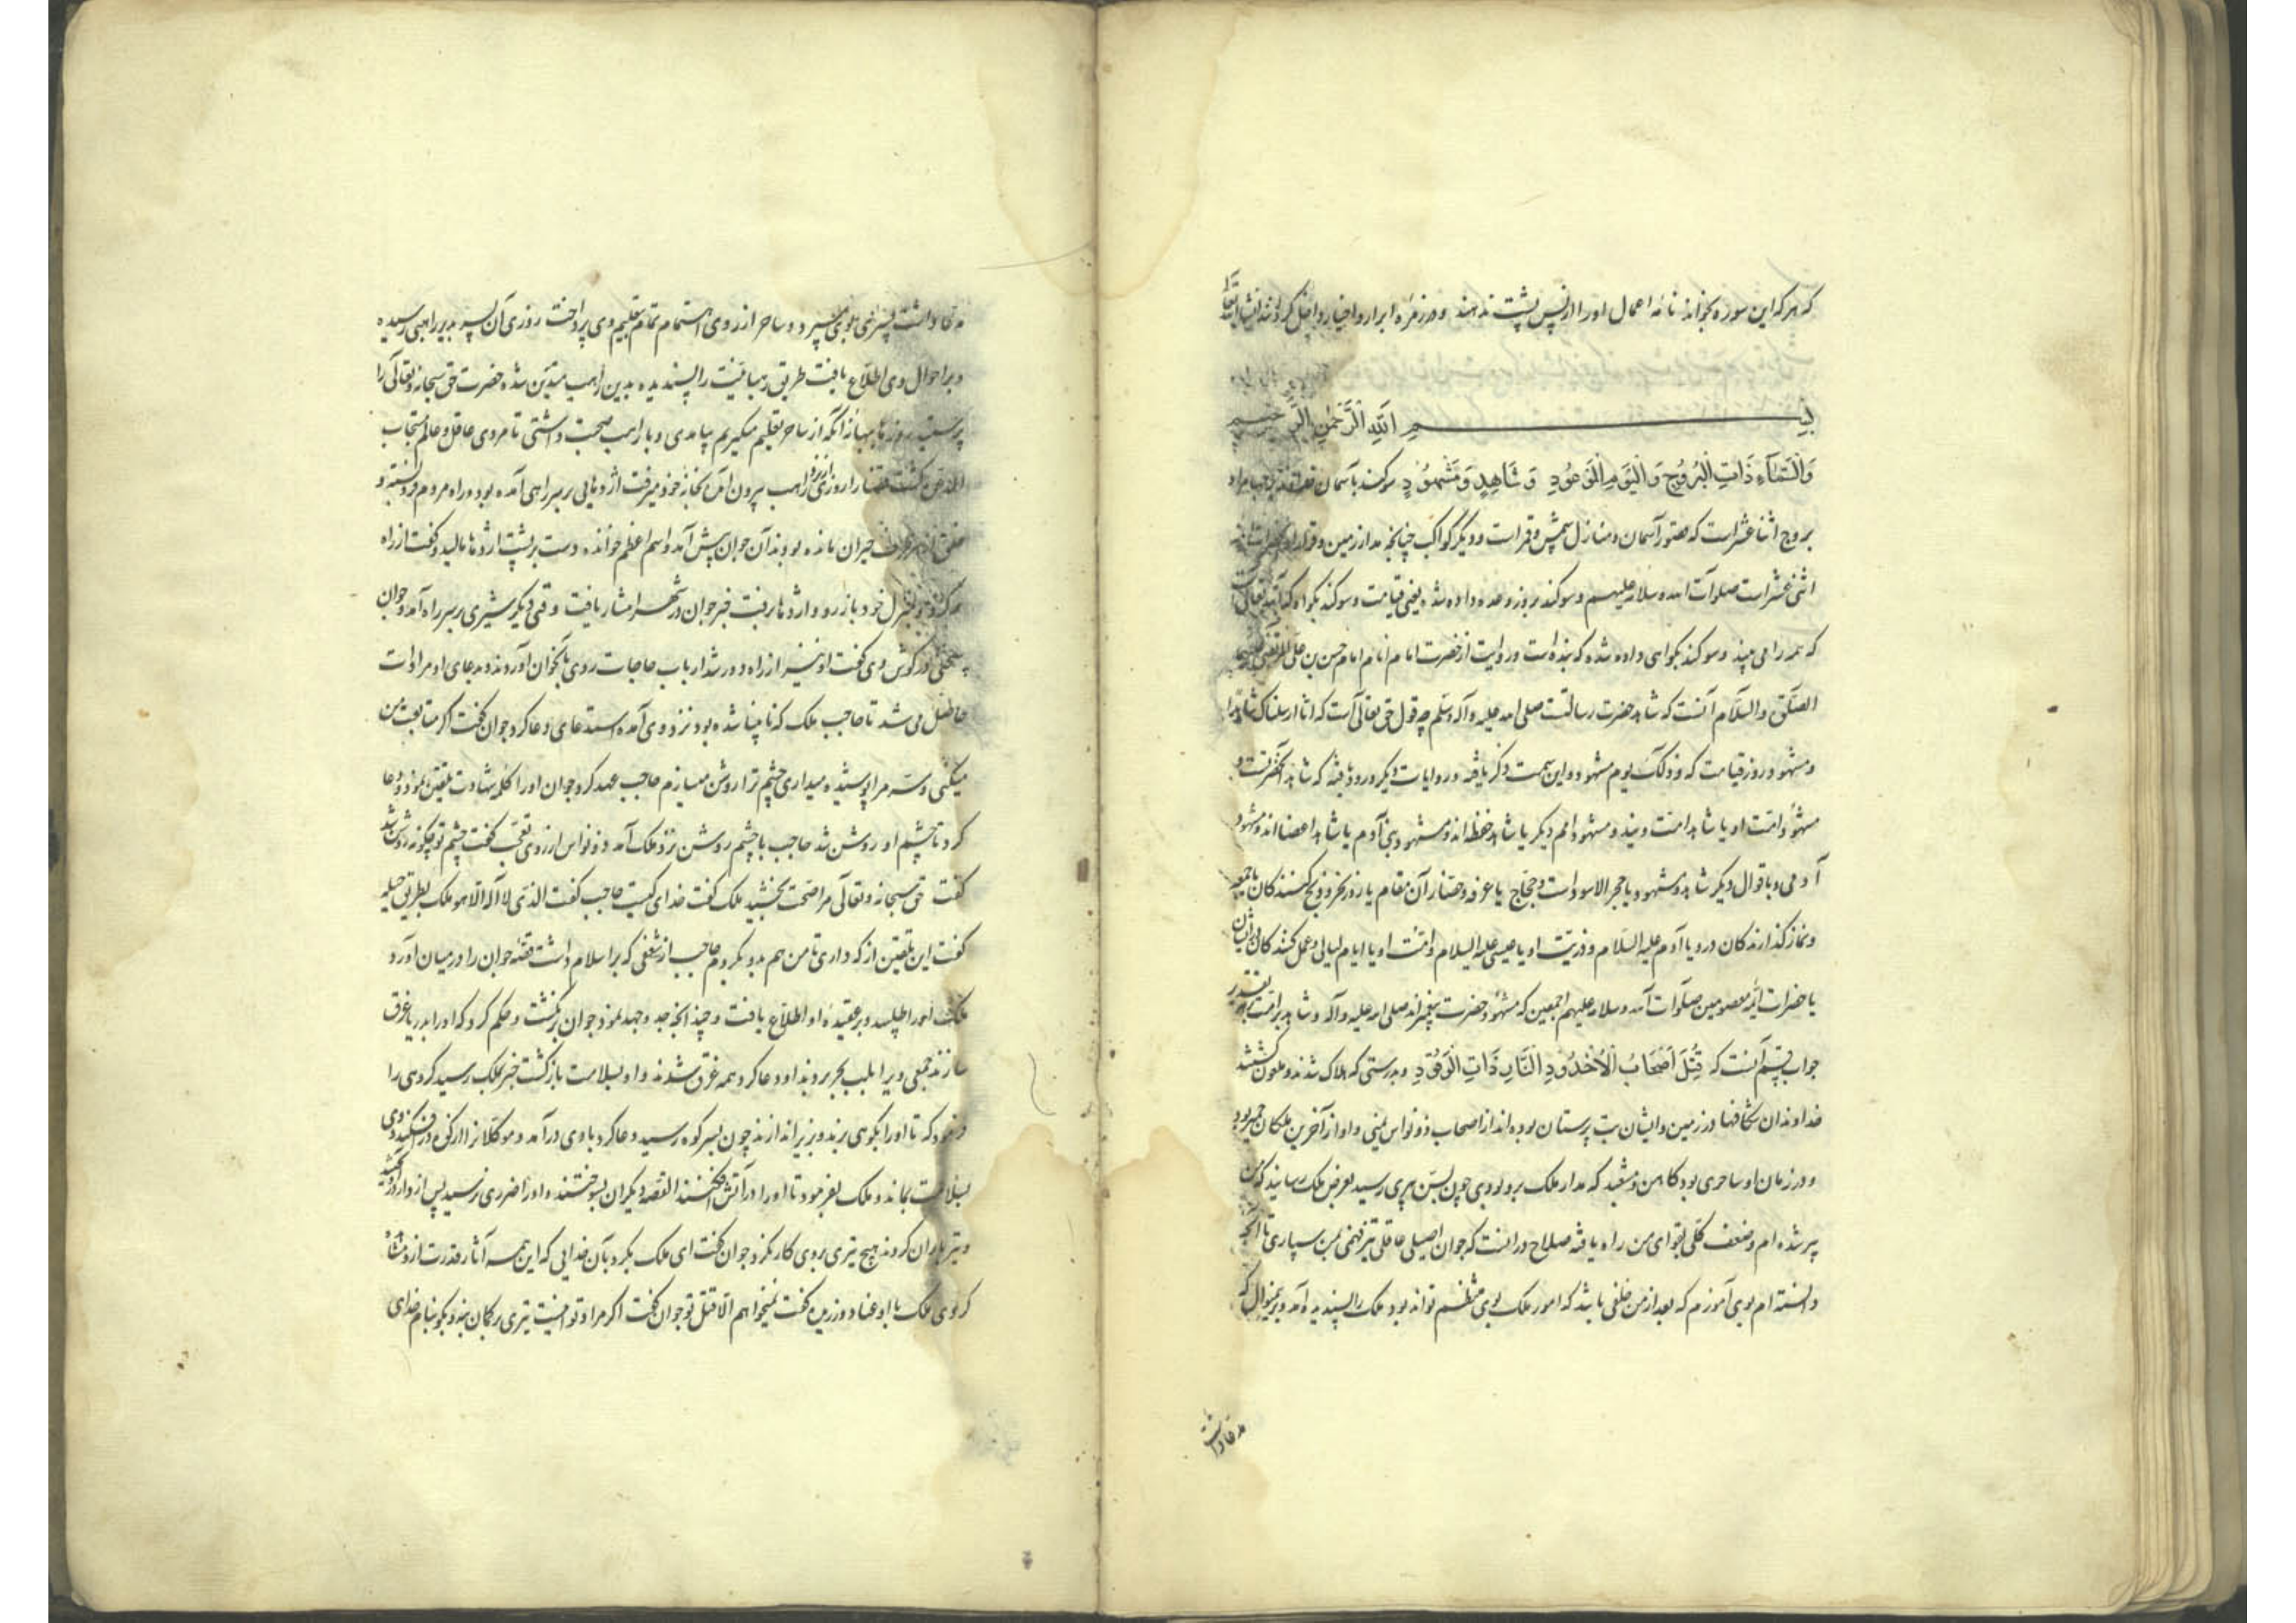 که هر که این سوره بخواند نامه اعمال او را از پس پشت ندهند و در زمره ابرار و اخیار داخل گردد انشاءالله تعالی
بسم الله الرحمن الرحیم
وَالسَّمَآءِ ذَاتِ الْبُرُوجِ وَالْیَوْمِ الْمَوْعُودِ وَ شَاهِدٍ وَمَشْهُودٍ سوکند بآسمان
بروج اثنا عشر است که قصور آسمان و منازل شمس و قمر است و دیگر کواکب چنانچه مدار زمین و قرار
اثنی عشر است صلوات الله و سلامه علیهم و سوکند بروز وعده داده شده یعنی قیامت و سوکند بگواه که
که همه را می بیند و سوکند بگواهی داده شده که بنده است و روایت از حضرت امام انام امام حسن بن علی المرتضی علیهما
الصلوة والسلام آنست که شاهد حضرت رسالت صلی الله علیه و آله وسلم چه قول حق تعالی است که انا ارسلناک شاهدا
و مشهود روز قیامت که و ذلک یوم مشهود و این سمت ذکر یافته و در روایات دیگر ورود یافته که شاهد آنحضرتست و
مشهود امت او یا شاهد امت ویند و مشهود امم دیگر یا شاهد حفظه اند و مشهود بنی آدم یا شاهد اعضا اند و مشهود
آدمی و باقوال دیگر شاهد و مشهود یا حجر الاسود است و حجاج یا عرفه و حضار آن مقام یا روز نحر و ذبح کنندگان یا جمعه
و نماز گذارندکان در و یا آدم علیه السلام و ذریت او یا عیسی علیه السلام و امت او یا ایام لیالی و عمل کنندکان در ایشان
یا حضرات ائمه معصومین صلوات الله و سلامه علیهم اجمعین که مشهود حضرت پیغمبراند صلی الله علیه و آله و شاهد بر امت
جواب قسم آنست که قُتِلَ اَصْحَابُ الْاُخْدُودِ النَّارِ ذَاتِ الْوَقُودِ و بدرستی که هلاک شدند و ملعون کشتند
خداوندان شکافها در زمین و ایشان بت پرستان بوده اند از اصحاب ذونواس یمنی و او از آخرین ملکان حمیر بود
و در زمان او ساحری بود کاهن و مشعبد که مدار ملک برو بود وی چون بسن پیری رسید بعرض ملک رسانید که من
پیر شده ام و ضعف کلی بقوای من راه یافته صلاح در انست که جوان اصیلی عاقلی تیز فهمی بمن سپاری تا آنچه
دانسته ام بوی آموزم که بعد از من خلفی باشد که امور ملک بوی منتظم تواند بود ملک را پسندیده آمد و برین منوال
ملک پسری بوی سپرد و ساحر از روی اهتمام تمام بتعلیم وی پرداخت روزی آن پسر بدیر راهبی رسیده
و بر احوال وی اطلاع یافت طریق رهبانیت را پسندیده بدین راهب متدین شده حضرت حق سبحانه و تعالی را
پرستید روزها ببهانه آنکه از ساحر تعلیم میگیرم بیامدی و با راهب صحبت داشتی تا مردی عاقل و عالم و مستجاب
الدعوة کشت قضا را روزی از نزد راهب بیرون آمده بخانه خود میرفت اژدهایی بر سر راهی آمده بود و راه مردم فروبسته و
خلق از هر طرف حیران مانده بودند آن جوان پیش آمد و اسم اعظم خوانده دست بر پشت اژدها مالید و کفت از راه
بمنزل خود باز رو و اژدها برفت خبر جوان در شهر انتشار یافت وقتی دیگر شیری بر سر راه آمد و جوان
سخنی در کوش وی کفت او نیز از راه دور شد ارباب حاجات روی بآنجوان آوردند و بدعای او مرادات
حاصل می شد تا حاجب ملک که نابینا شده بود نزد وی آمده استدعای دعا کرد جوان کفت اگر متابعت من
میکنی و سر مرا پوشیده میداری چشم ترا روشن میسازم حاجب عهد کرد جوان او را کلمه شهادت تلقین نمود و دعا
کرد تا چشم او روشن شد حاجب با چشم روشن نزد ملک آمد ذونواس از روی تعجب کفت چشم تو چگونه روشن شد
کفت حق سبحانه و تعالی مرا صحت بخشید ملک کفت خدای کیست حاجب کفت الذی لا اله الا هو ملک بطریق حیله
کفت این تلقین از که داری تا من هم بدو بگروم حاجب از شغفی که بر اسلام داشت قصه جوان را در میان آورد
ملک او را طلبید و بر عقیده او اطلاع یافت و چندانچه جد و جهد نمود جوان برنگشت و حکم کرد که او را بدریا غرق
سازند جمعی ویرا بلب بحر بردند او دعا کرد همه غرق شدند و او بسلامت بازگشت خبر بملک رسید کروهی را
فرمود که تا او را بکوهی برند و بزیر اندازند چون بسر کوه رسید دعا کرد بادی درآمد و موکلانرا از کوه در افکند و وی
بسلامت بماند و ملک بفرمود تا او را در آتش افکنند القصه دیگران بسوختند و او را ضرری نرسید پس از دار
و تیر باران کردند هیچ تیری بر وی کار نکرد جوان کفت ای ملک بگرو بآن خدایی که این همه آثار قدرت ازو مشاهده
کردی ملک با او عناد ورزیده کفت نمیخواهم الا قتل تو جوان کفت اگر مراد تو اینست تیری بر کمان بنه و بگو بنام خدای